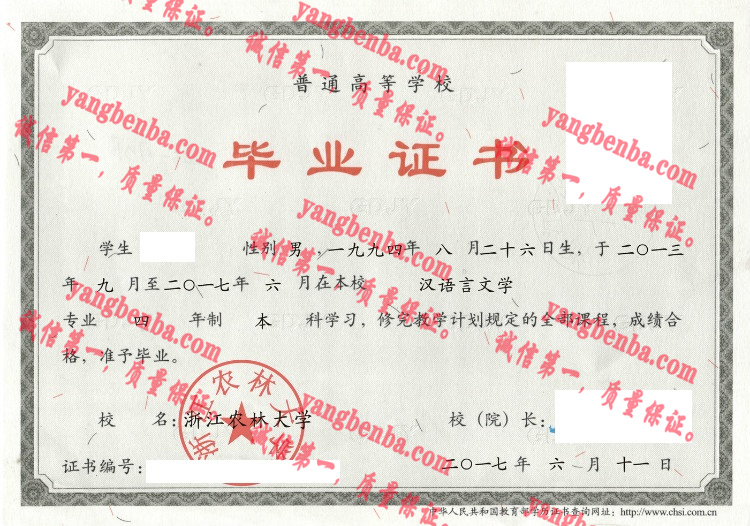 普通高等学校
毕业证书
学生 性别 男，一九九四年 八 月二十六日生，于二〇一三
年 九 月至二〇一七年 六 月在本校 汉语言文学
专业 四 年制 本 科学习，修完教学计划规定的全部课程，成绩合
格，准予毕业。
校 名：浙江农林大学 校（院）长：
证书编号： 二〇一七年 六 月 十一 日
中华人民共和国教育部学历证书查询网址：http://www.chsi.com.cn
浙江农林大
yangbenba.com
诚信第一，质量保证。
yangbenba.com
诚信第一，质量保证。
yangbenba.com
诚信第一，质量保证。
yangbenba.com
诚信第一，质量保证。
yangbenba.com
诚信第一，质量保证。
yangbenba.com
诚信第一，质量保证。
yangbenba.com
诚信第一，质量保证。